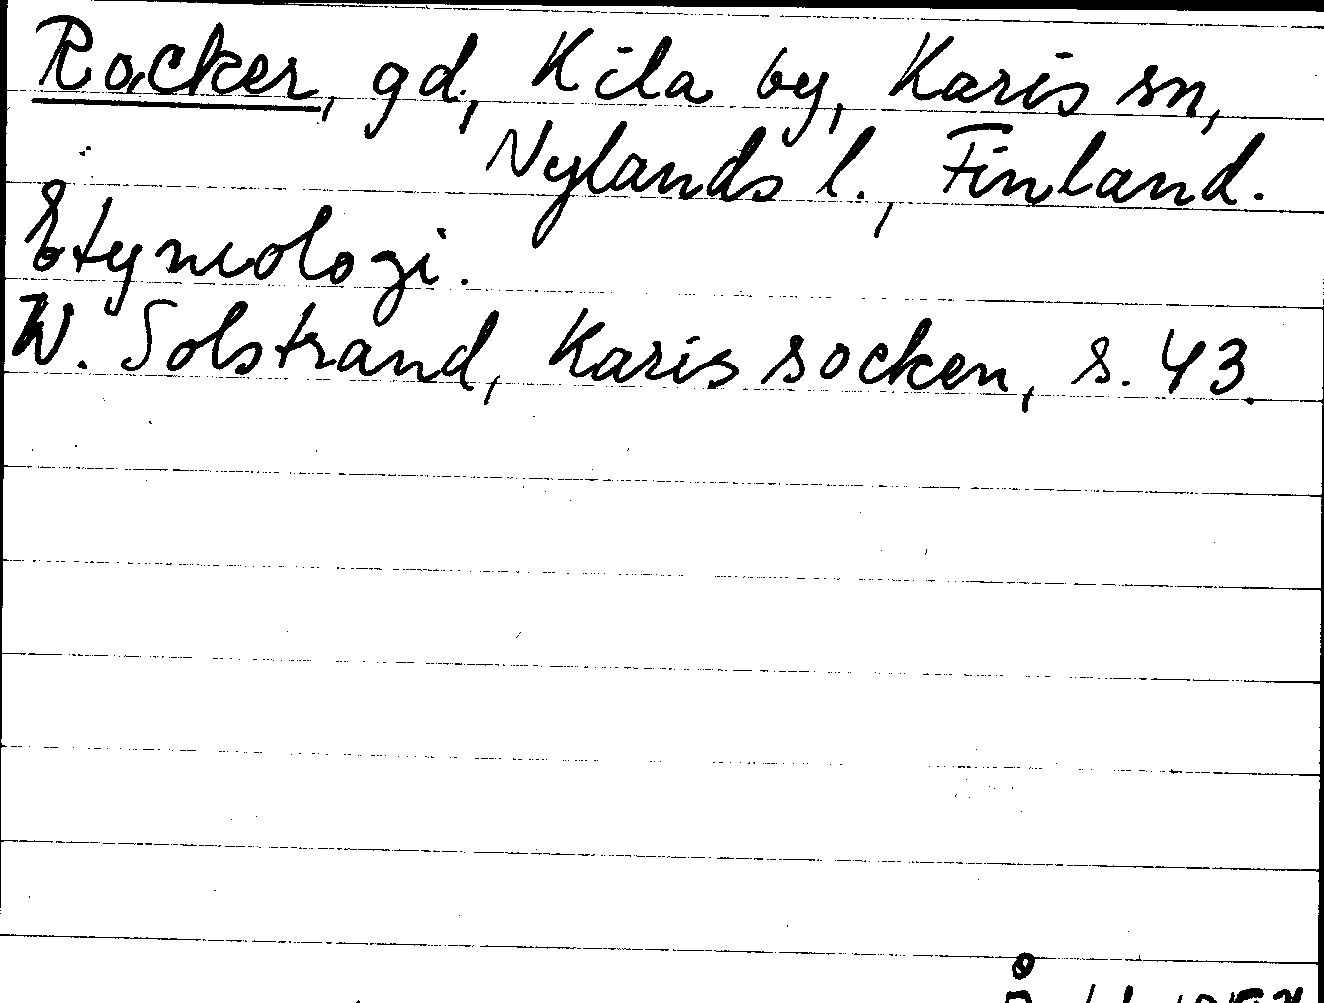 Racker, gd, Kila by, Karis sn,
Nylands l., Finland.
Etymologi.
W. Solstrand, Karis socken, s. 43.